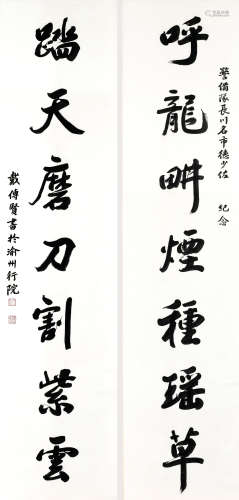 警備隊長川名市德少佐 紀念
呼龍畊煙種瑶草
踏天磨刀割紫雲
戴傅賢書於渝州行院